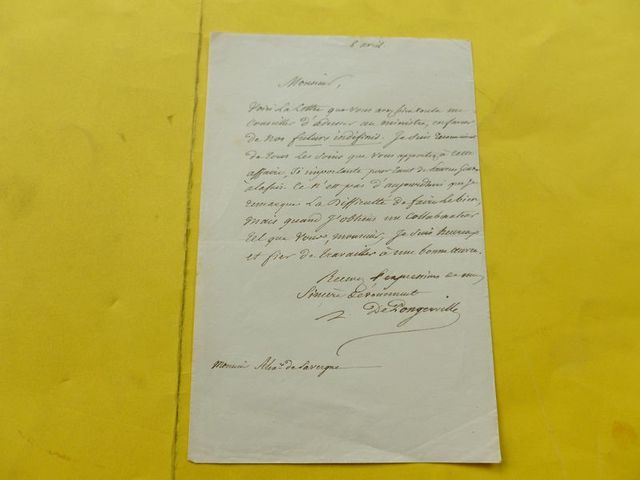 6 avril
Monsieur,
Voici la lettre que vous avez bien voulu me
conseiller d'adresser au ministre, en faveur
de nos futurs indéfinis. Je suis reconnaissant
de tous les soins que vous apportez à cette
affaire, si importante pour tant de
à la fois. Ce n'est pas d'aujourd'hui que je
remarque la difficulté de faire le bien,
mais quand j'obtiens un collaborateur
tel que vous, monsieur, je suis heureux
et fier de travailler à une bonne œuvre.
Recevez l'expression de mon
Sincère Dévouement
De Pongerville
Monsieur Alexre de Lavergne